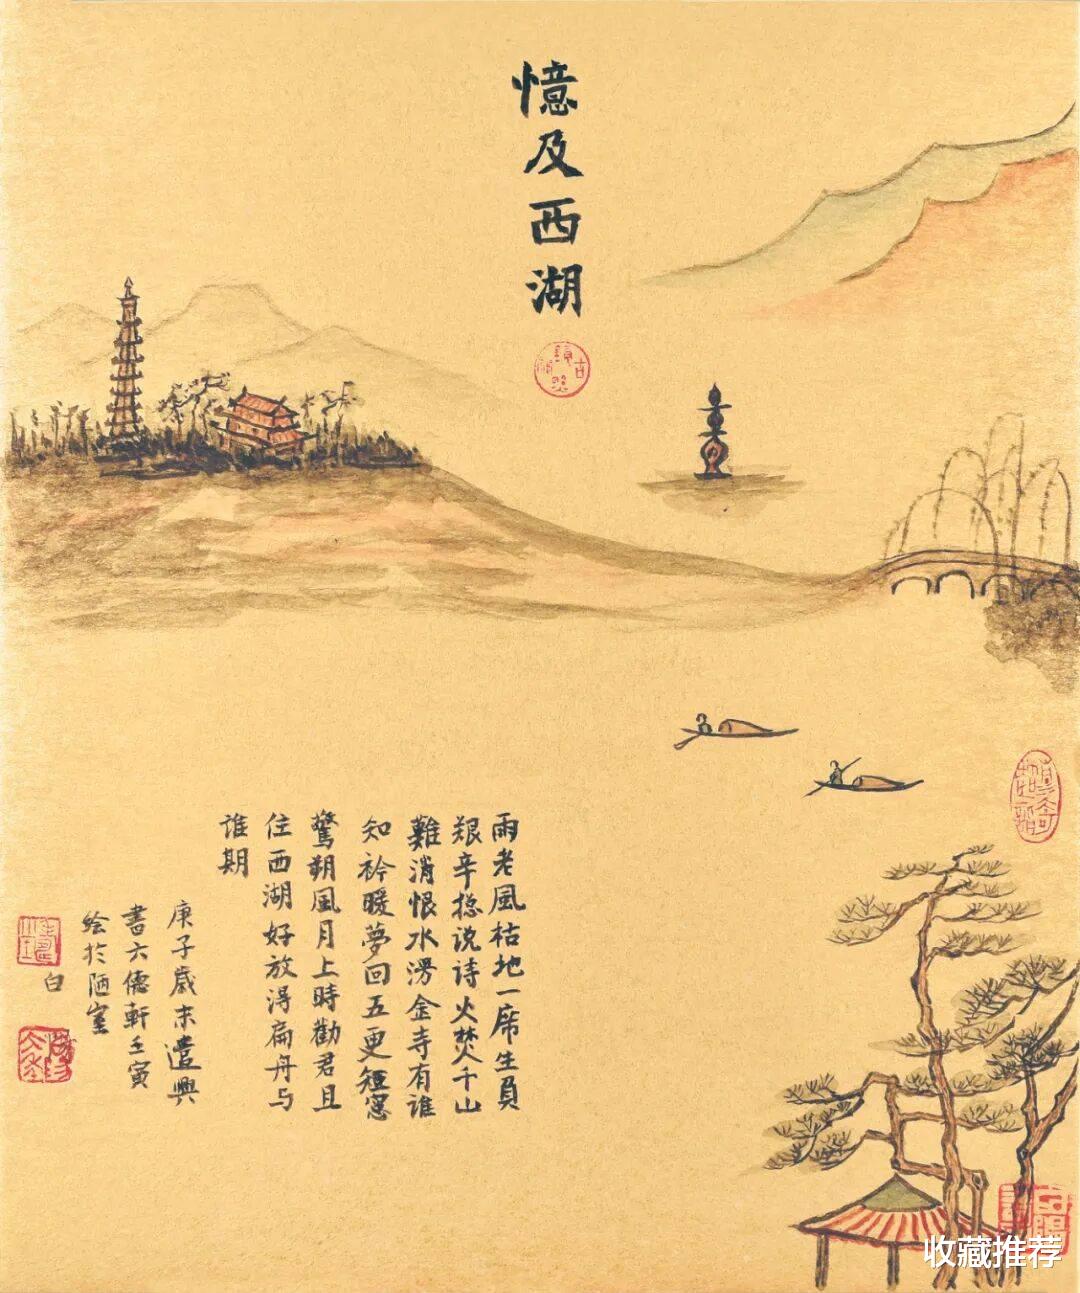 憶及西湖
雨老風枯地一席生員
艱辛揔说诗火焚千山
難消恨水滂金寺有谁
知衿暖夢回五更短窓
驚朔風月上時勸君且
住西湖好放得扁舟与
谁期
庚子歲末遣興
書六德軒壬寅
绘於陋室
白
收藏推荐